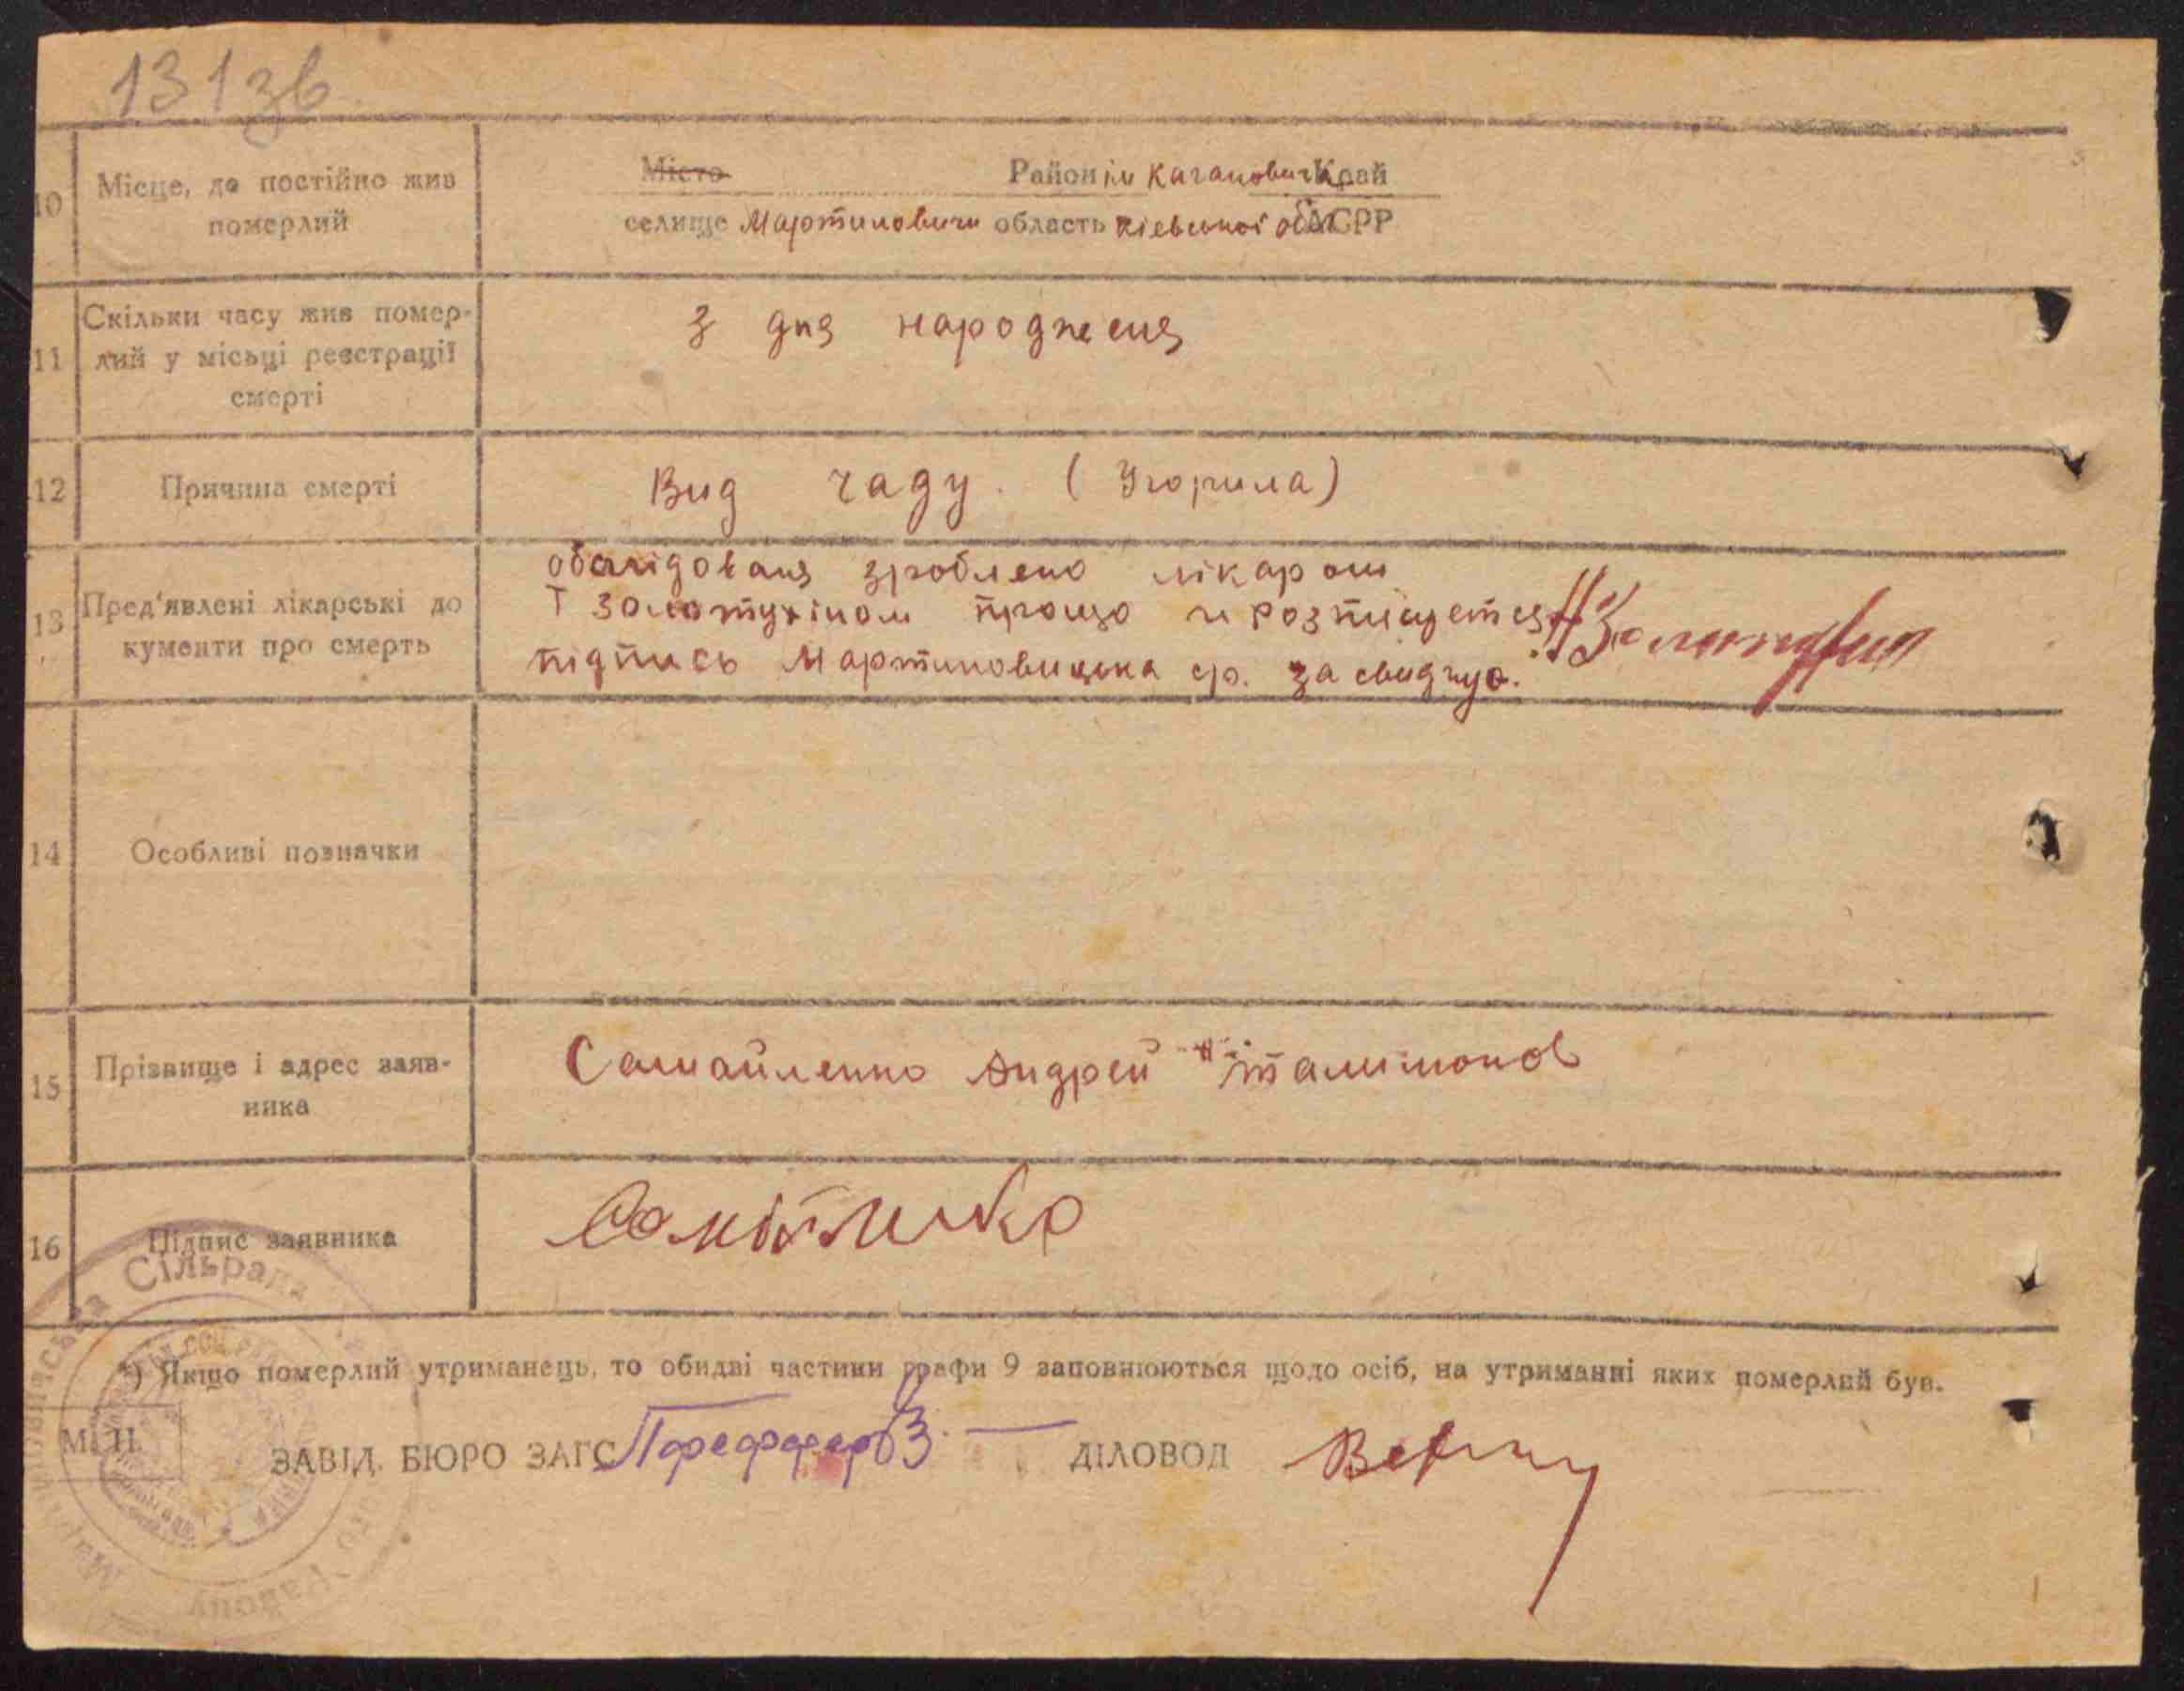 131зв
10 Місце, де постійно жив Місто Район ім Кагановича Край
померлий селище Мартиновичи область Кіевської обл АСРР
11 Скільки часу жив помер-
лий у місьці реєстрації
смерті
з дня народженя
12 Причина смерті Вид чаду. (Угорила)
13 Пред'явлені лікарські до
кументи про смерть
обслідованя зроблено лікаром
Т Золотухіном прощо и розпісуется
підпись Мартиновицька ср. засвидчує.
14 Особливі позначки
15 Прізвище і адрес заяв-
ника
Самайленко Андрей
16 Підпис заявника
Сільрада
*) Якщо померлий утриманець, то обидві частини графи 9 заповнюються щодо осіб, на утриманні яких померлий був.
М. П.
ЗАВІД. БЮРО ЗАГС ДІЛОВОД